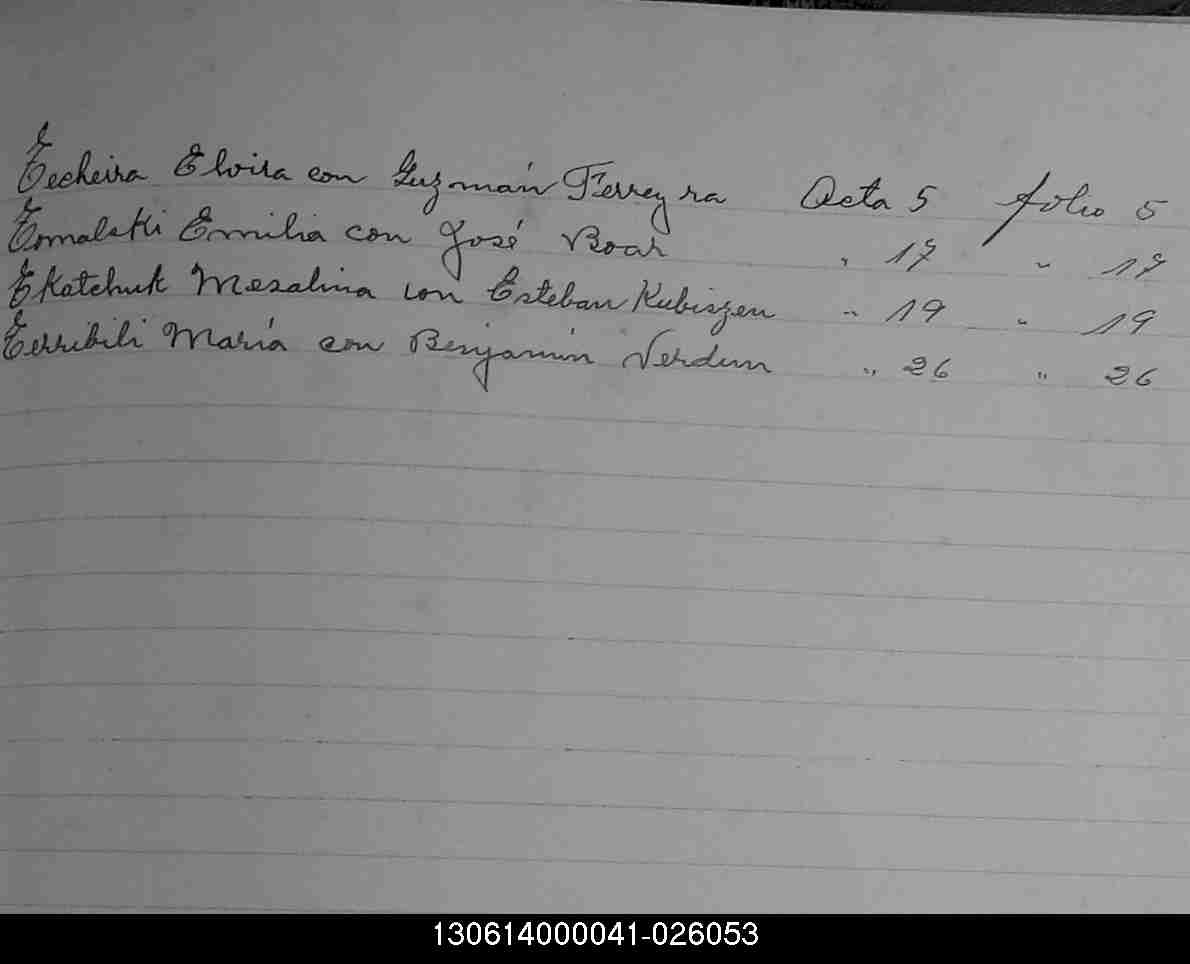 Techeira Elvira con Guzmán Ferreyra Acta 5 folio 5
Tomalski Emilia con José Boar " 17 " 17
Tkatchuk Mesalina con Esteban Kubiszen " 19 " 19
Terribili María con Benjamín Verdun " 26 " 26
130614000041-026053